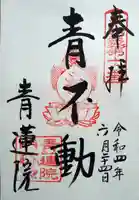 奉拝
令和四年六月二十四日
青不動
青蓮院